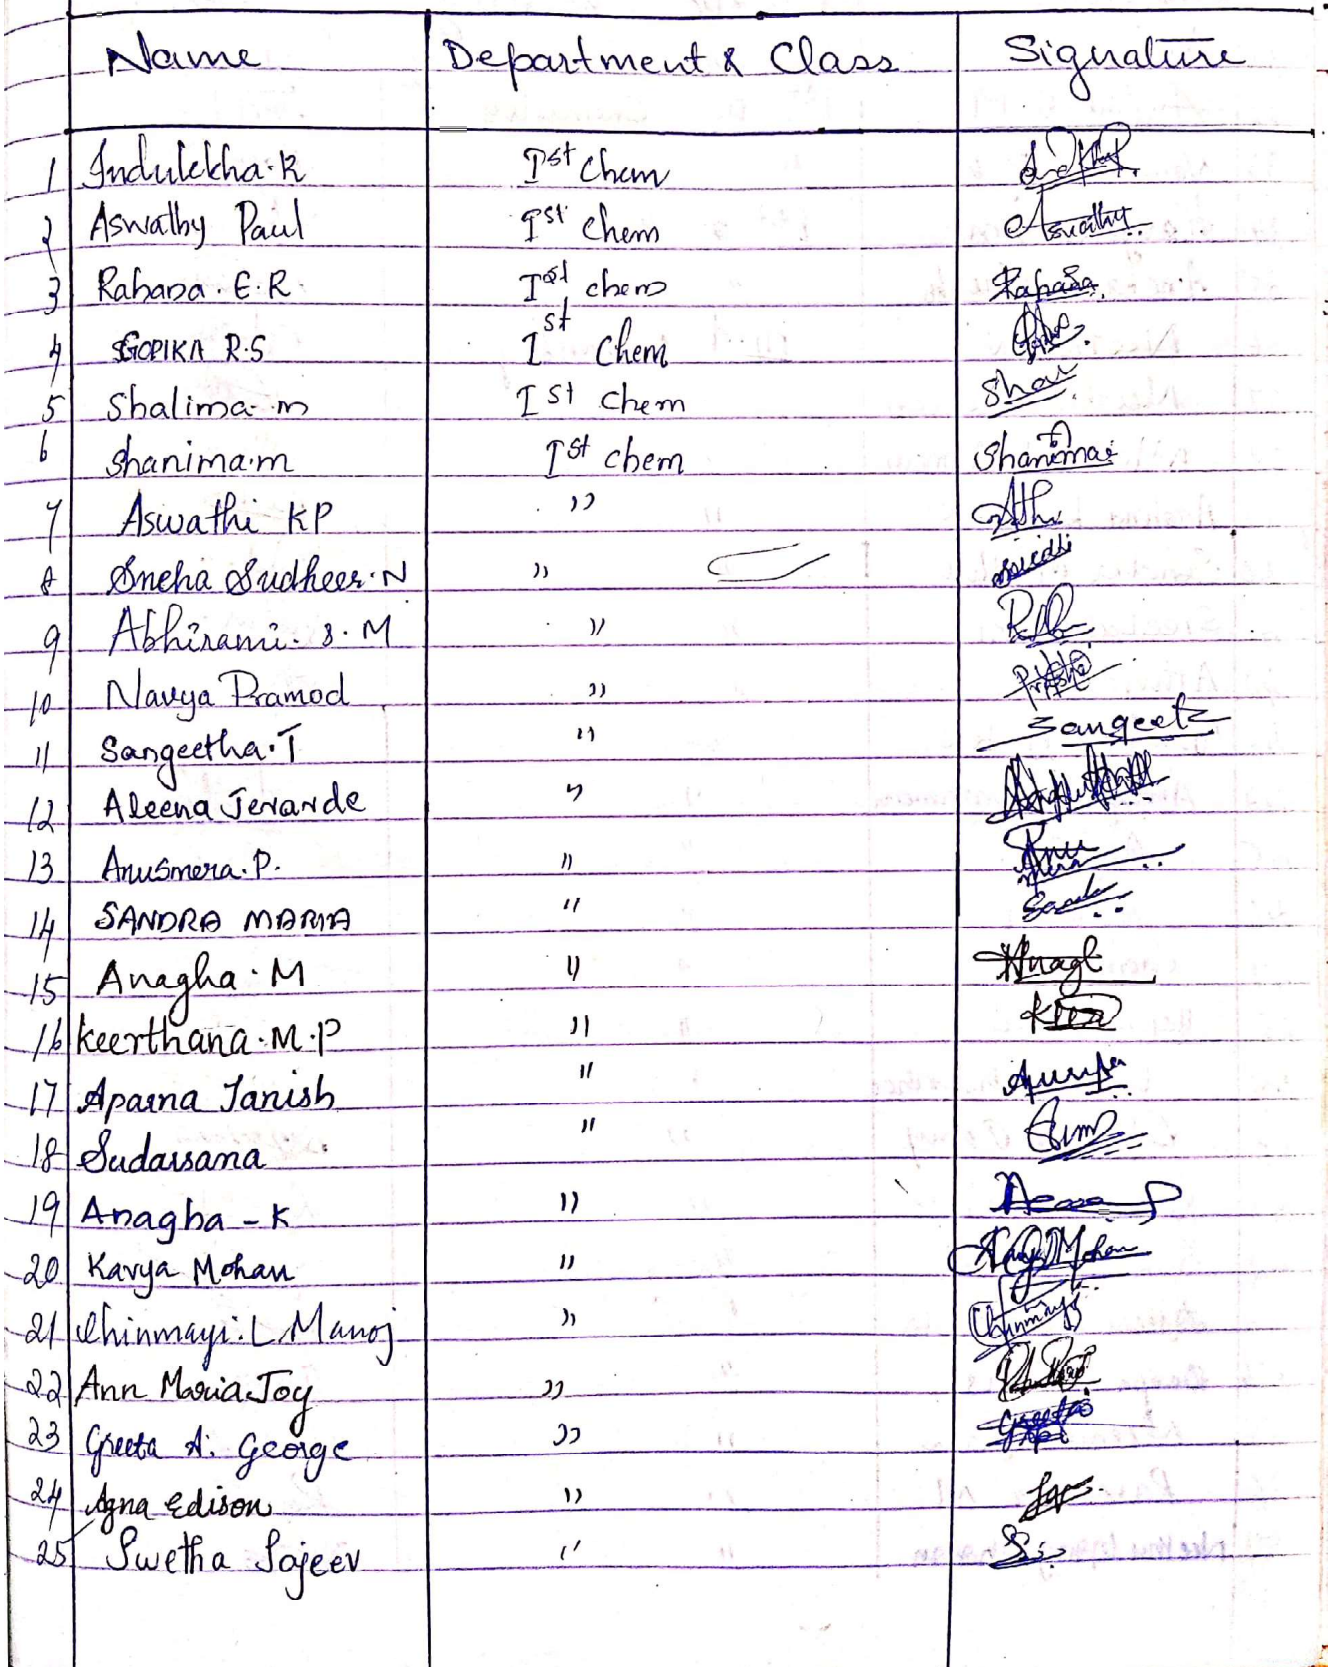 Name Department & Class Signature
1 Indulekha.K Ist Chem
2 Aswathy Paul Ist Chem Aswathy
3 Rahana.E.R Ist chem
4 GOPIKA R.S Ist Chem
5 Shalima.m Ist Chem Shal
6 Shanima.m Ist chem Shanima
7 Aswathi KP ''
8 Sneha Sudheer.N ''
9 Abhirami.S.M ''
10 Navya Pramod ''
11 Sangeetha.T '' Sangeet
12 Aleena Jerarde ''
13 Anusmera.P. ''
14 SANDRA MARIA ''
15 Anagha.M '' Anagh
16 Keerthana.M.P ''
17 Aparna Janish ''
18 Sudarsana ''
19 Anagha - K ''
20 Kavya Mohan '' Kavya Mohan
21 Chinmayi.L.Manoj '' Chinmayi
22 Ann Maria Joy ''
23 Greeta A. George '' Greeta
24 Agna Edison ''
25 Swetha Sajeev ''